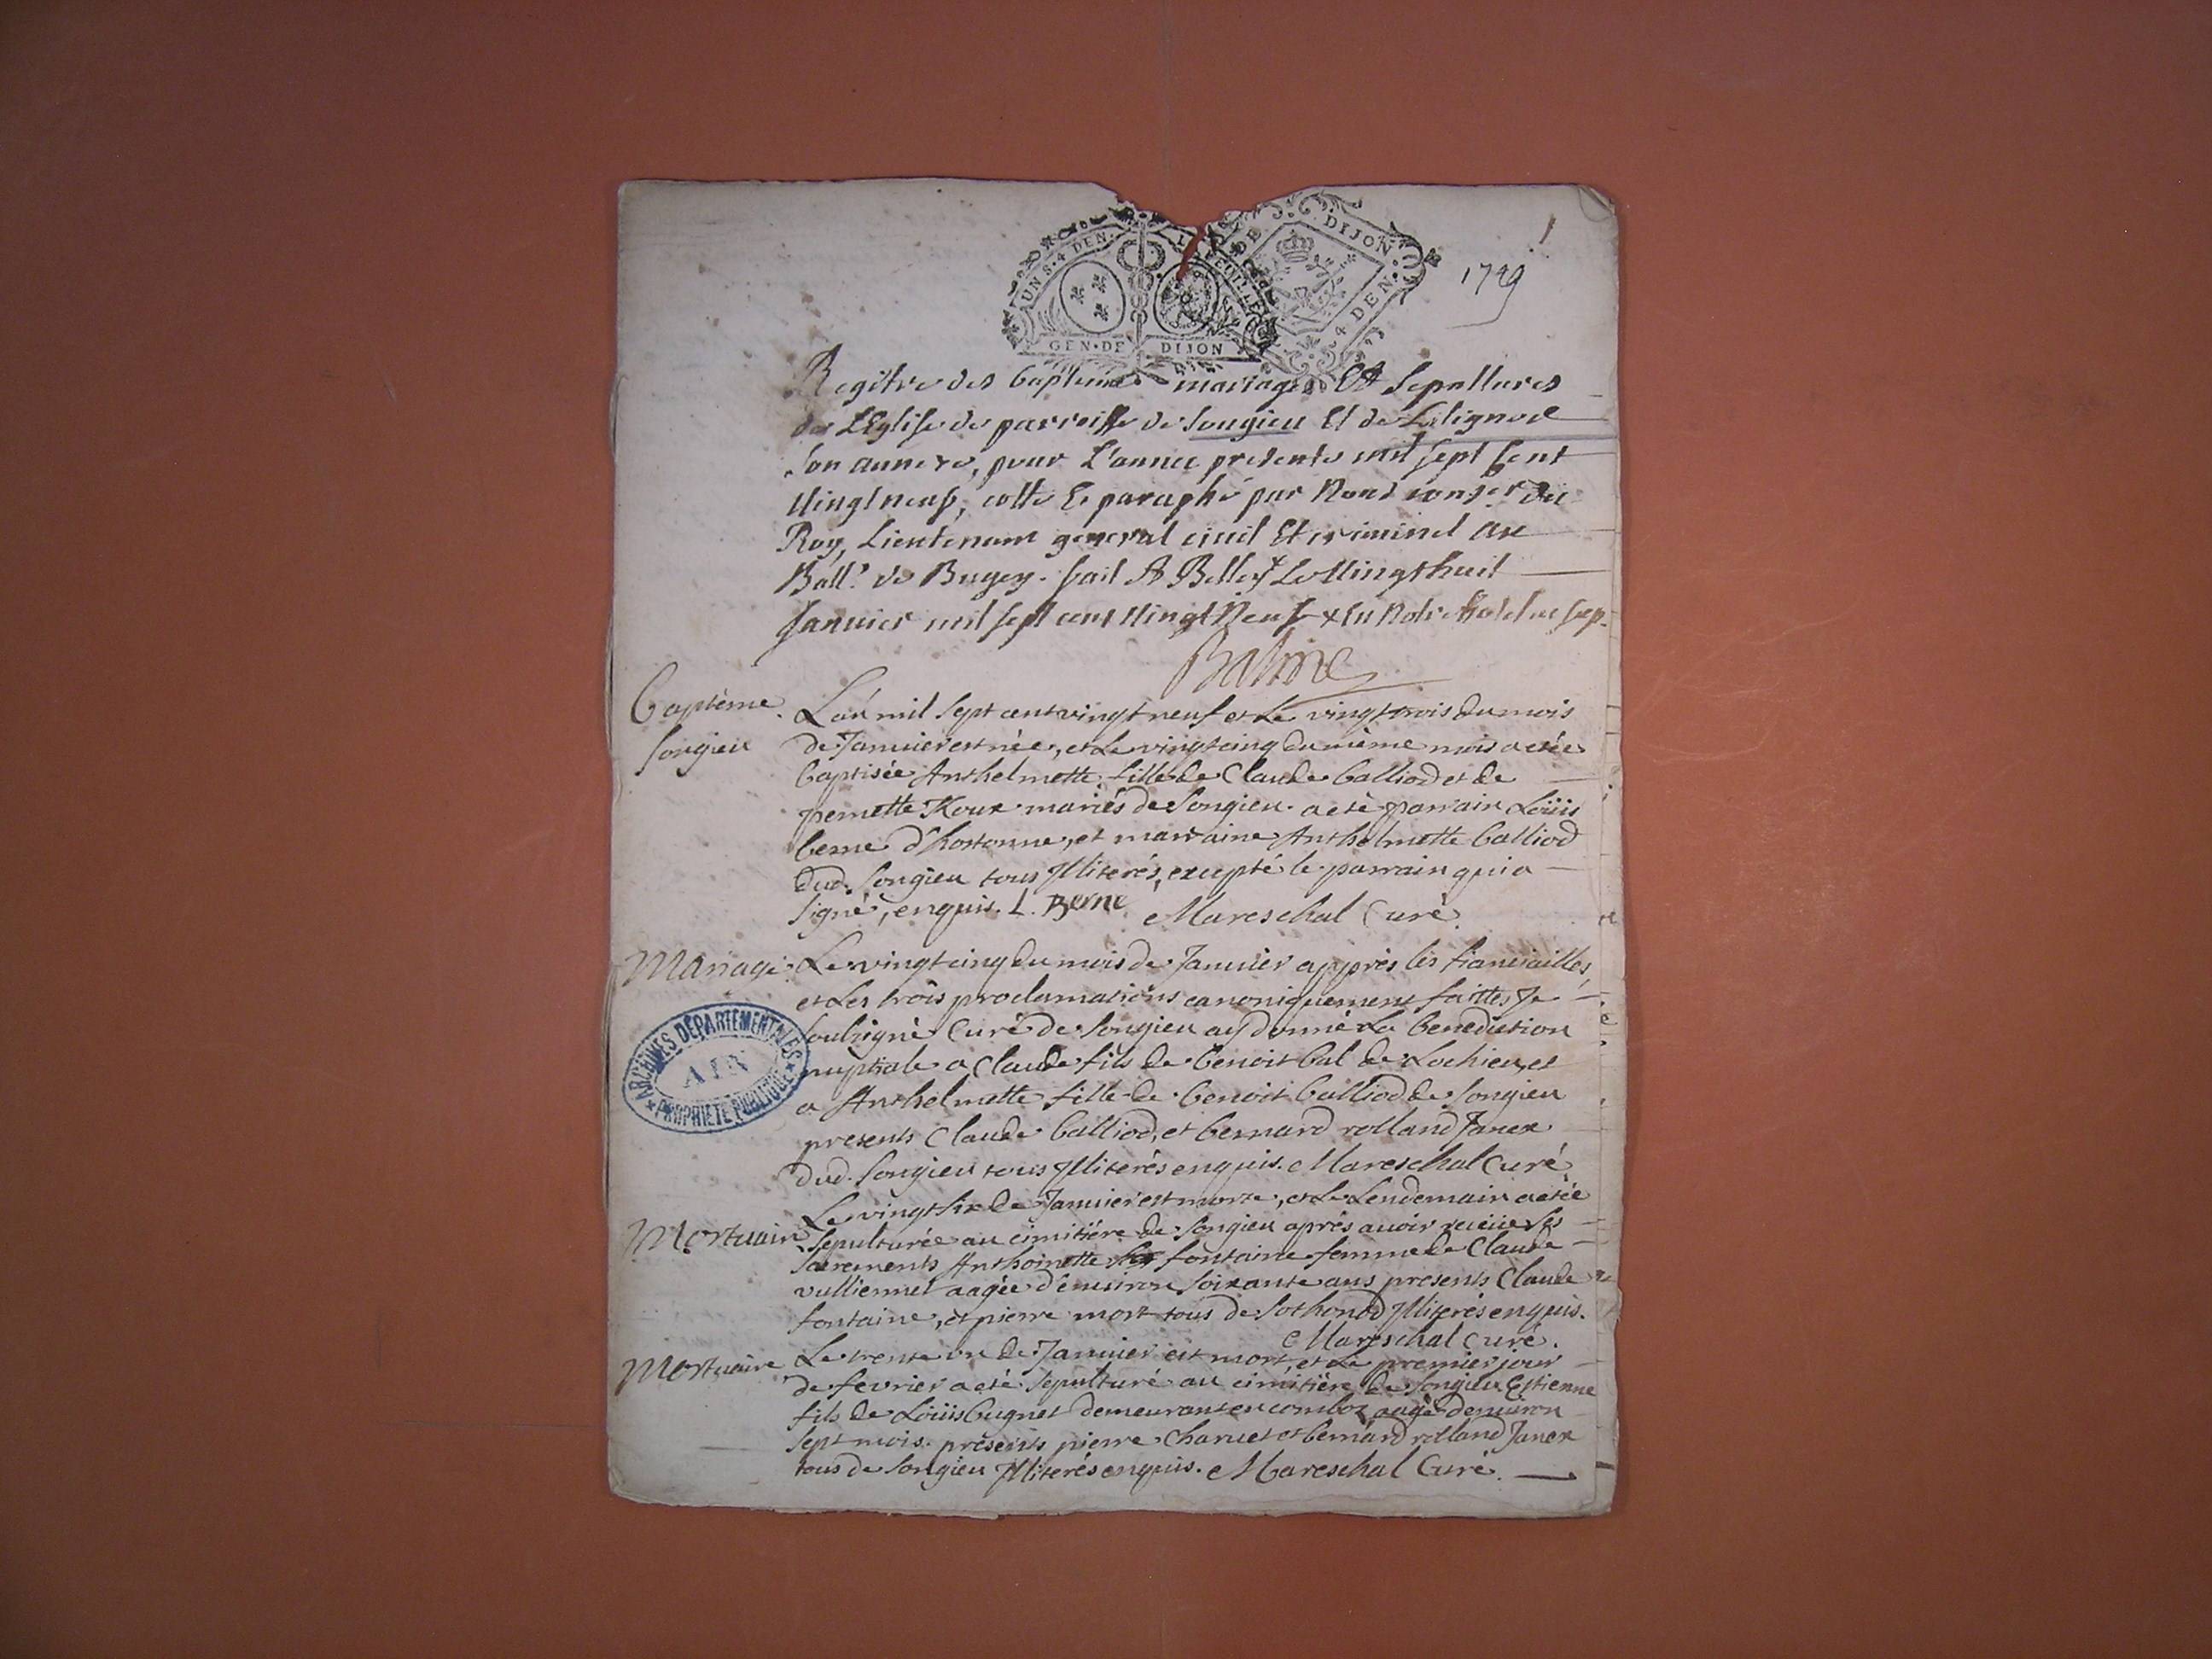 1
1729
UN S. 4 DEN.
GEN. DE DIJON
DE DIJON
4 DEN.
Regitre des baptemes mariages Et Sepultures
de L'Eglise de parroisse de Songieu Et de Lilignod
son annexe, pour L'année presente mil sept Cent
Vingt neuf, cotté & paraphé par Nous cons.er du
Roy, Lieutenant general civil Et criminel au
Ball.e de Bugey. fait A Belley Le Vingthuit
Janvier mil sept cent Vingt Neuf
Balme
Baptème
Songieu
L'an mil sept cent vingt neuf et Le vingt trois du mois
de Januier est née, et Le vingt cinq du mème mois a etée
baptisée Anthelmette fille de Claude balliod et de
pernette Roux mariés de Songieu. a eté parrain Loüis
berne d'hostonne, et marraine Anthelmette balliod
dud. Songieu tous Illiterés, excepté le parrain qui a
signé, enquis. L. Berne Mareschal Curé
Mariage
Le vingt cinq du mois de Januier apprés les fiancailles,
et Les trois proclamations canoniquement faittes Je
soubsigné Curé de Songieu ay donné La benediction
nuptiale a Claude fils de benoit bal de Lochieu, et
a Anthelmette fille de benoit balliod de Songieu
presents Claude balliod, et bernard rolland Janex
dud. Songieu tous Illiterés enquis. Mareschal Curé
ARCHIVES DÉPARTEMENTALES
AIN
PROPRIÉTÉ PUBLIQUE
Mortuaire
Le vingt six de Januier est morte, et Le Lendemain a etée
sepulturée au cimitiére de Songieu aprés auoir receue ses
sacrements Anthoinette fontaine femme de Claude
vulliermet aagée d'enuiron soixante ans presents Claude
fontaine, et pierre mort tous de Sothonod Illiterés enquis.
Mareschal Curé.
Mortuaire
Le trente un de Januier est mort, et Le premier jour
de fevrier a eté sepulturé au cimitiére de Songieu Estienne
fils de Loüis bugnet demeurant en comboz aagé d'enuiron
sept mois. présents pierre Charuet et bernard rolland Janex
tous de Songieu Illiterés enquis. Mareschal Curé.